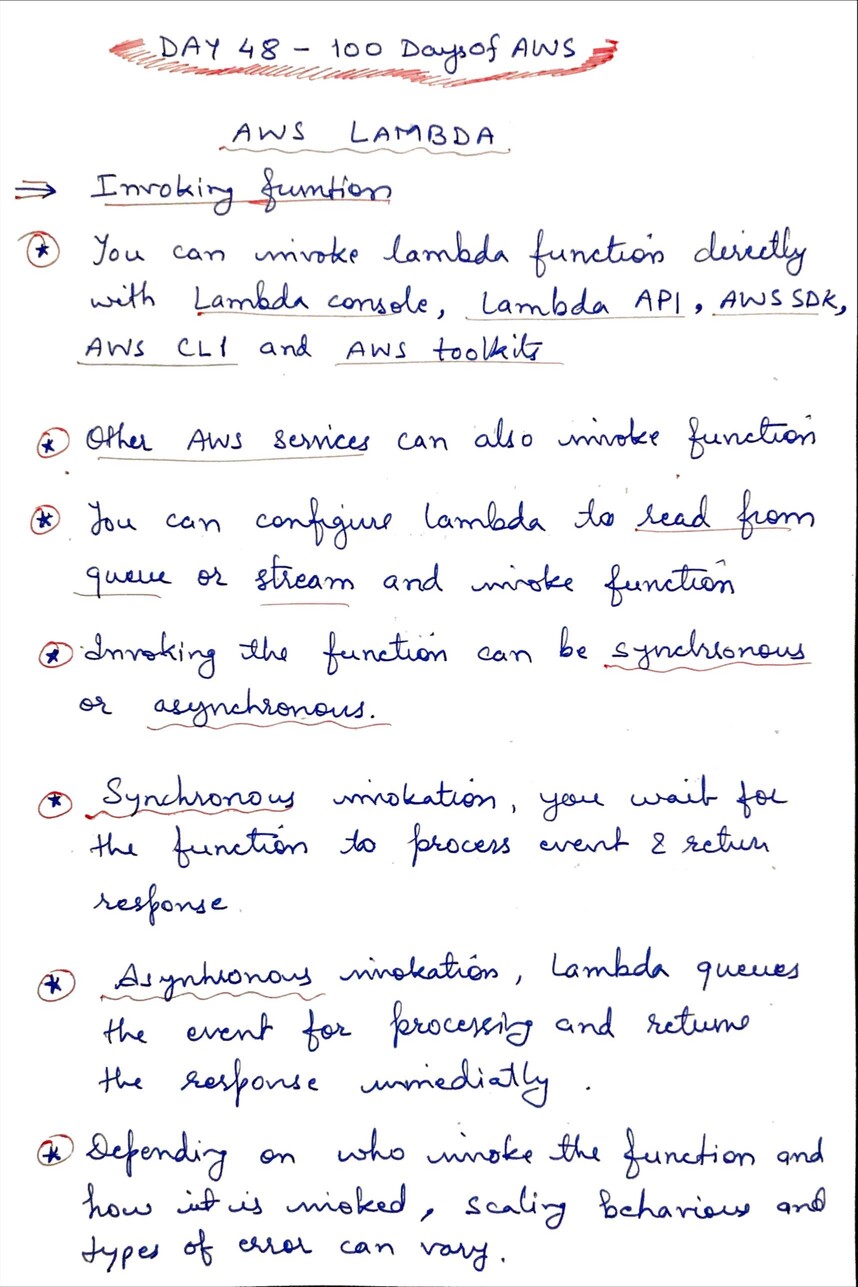 DAY 48 - 100 Days of AWS
AWS LAMBDA
⇒ Invoking funtion
* You can invoke lambda function directly
with Lambda console, Lambda API, AWS SDK,
AWS CLI and AWS toolkits
* Other AWS services can also invoke function
* You can configure lambda to read from
queue or stream and invoke function
* Invoking the function can be synchronous
or asynchronous.
* Synchronous invokation, you wait for
the function to process event & return
response.
* Asynhronous invokation, Lambda queues
the event for processing and returns
the response immediatly.
* Depending on who invoke the function and
how it is invoked, scaling behaviour and
types of error can vary.